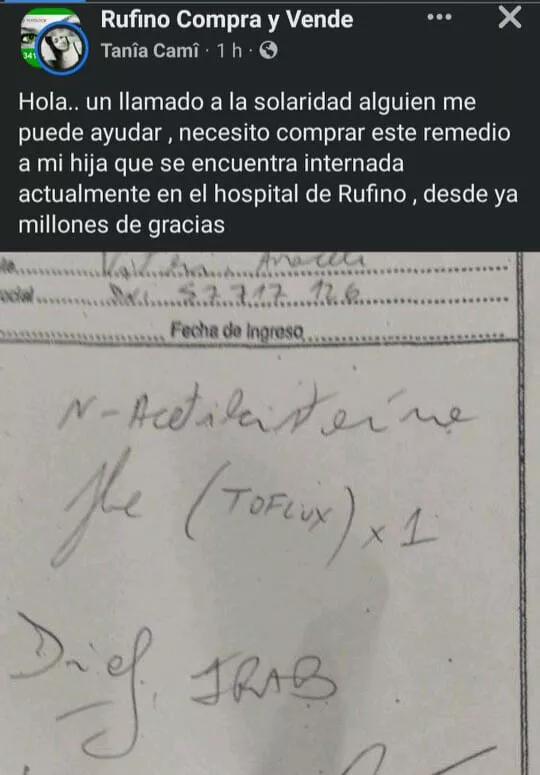 Rufino Compra y Vende
Tanîa Camî · 1 h ·
Hola.. un llamado a la solaridad alguien me
puede ayudar , necesito comprar este remedio
a mi hija que se encuentra internada
actualmente en el hospital de Rufino , desde ya
millones de gracias
341
ocial
DNI 57.717.126
Fecha de Ingreso
N-Acetilcisteína
(TOFLUX) x 1
IRAB